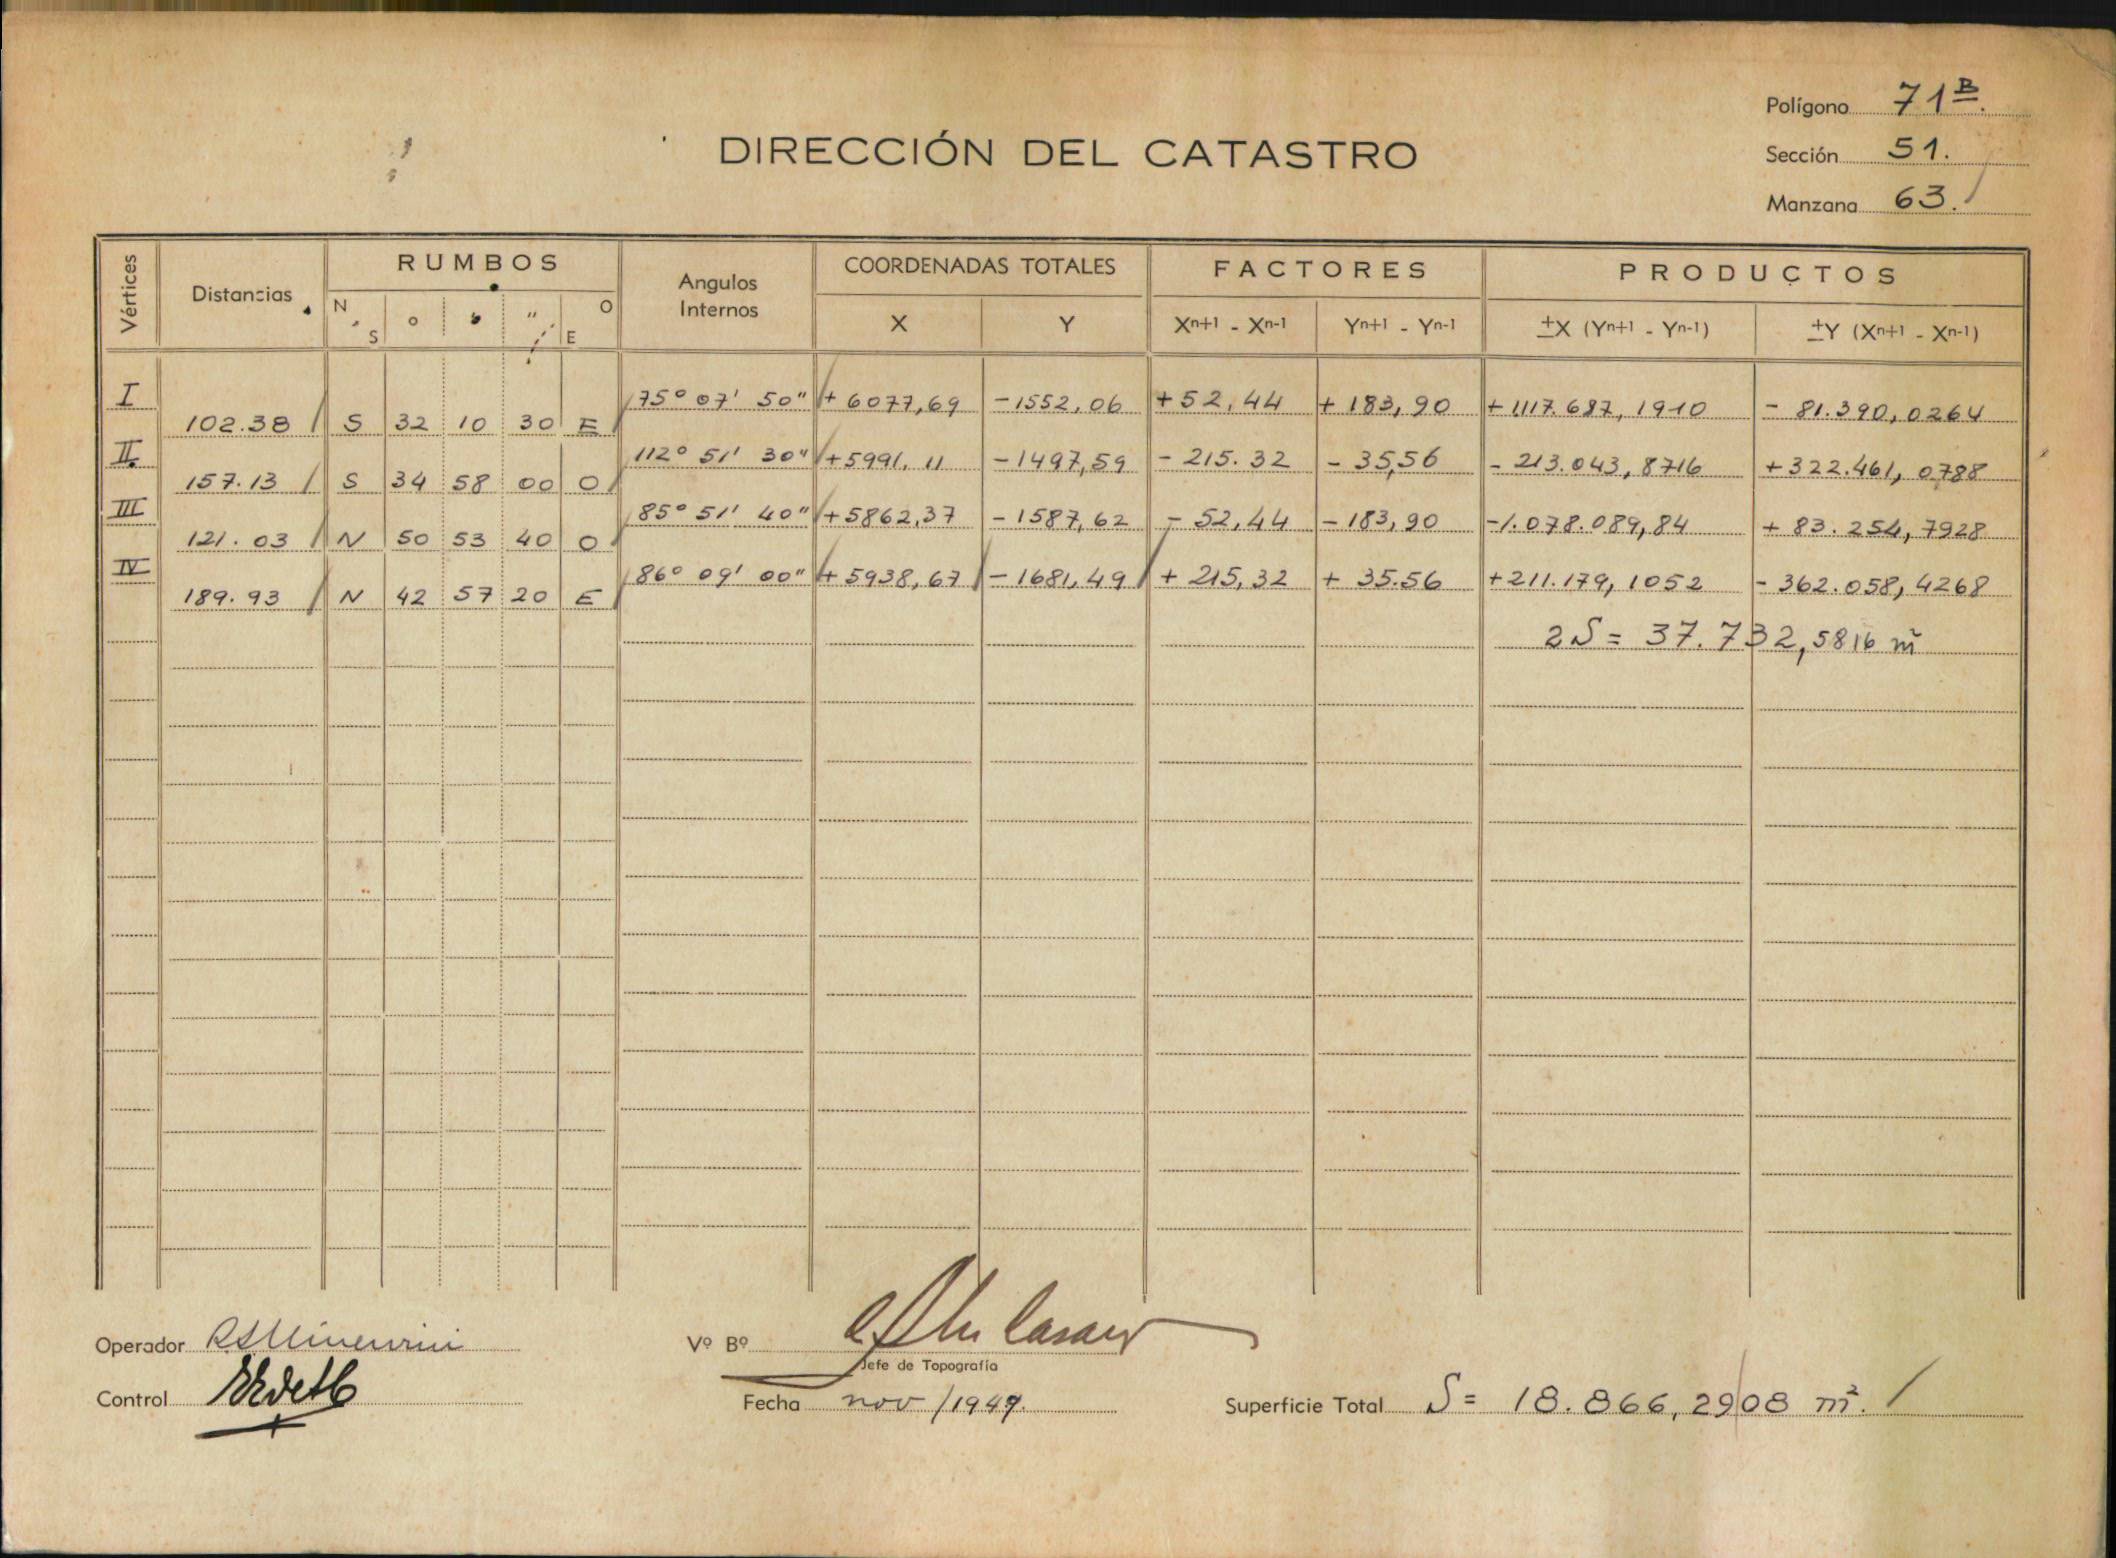 Polígono 71B.
DIRECCIÓN DEL CATASTRO
Sección 51.
Manzana 63.
Vértices Distancias RUMBOS Angulos Internos COORDENADAS TOTALES FACTORES PRODUCTOS
N S o ' " O E X Y Xn+1 - Xn-1 Yn+1 - Yn-1 ±X (Yn+1 - Yn-1) ±Y (Xn+1 - Xn-1)
I 75° 07' 50" + 6077,69 -1552,06 +52,44 + 183,90 +1117.687,1910 - 81.390,0264
102.38 S 32 10 30 E
II 112° 51' 30" +5991,11 -1497,59 - 215.32 - 35,56 - 213.043,8716 +322.461,0788
157.13 S 34 58 00 O
III 85° 51' 40" +5862,37 -1587,62 - 52,44 -183,90 -1.078.089,84 + 83.254,7928
121.03 N 50 53 40 O
IV 86° 09' 00" + 5938,67 -1681,49 + 215,32 + 35.56 +211.179,1052 - 362.058,4268
189.93 N 42 57 20 E
2S = 37.732,5816 m²
Operador
Vº Bº
Jefe de Topografía
Control
Fecha nov/1949.
Superficie Total S = 18.866,2908 m².